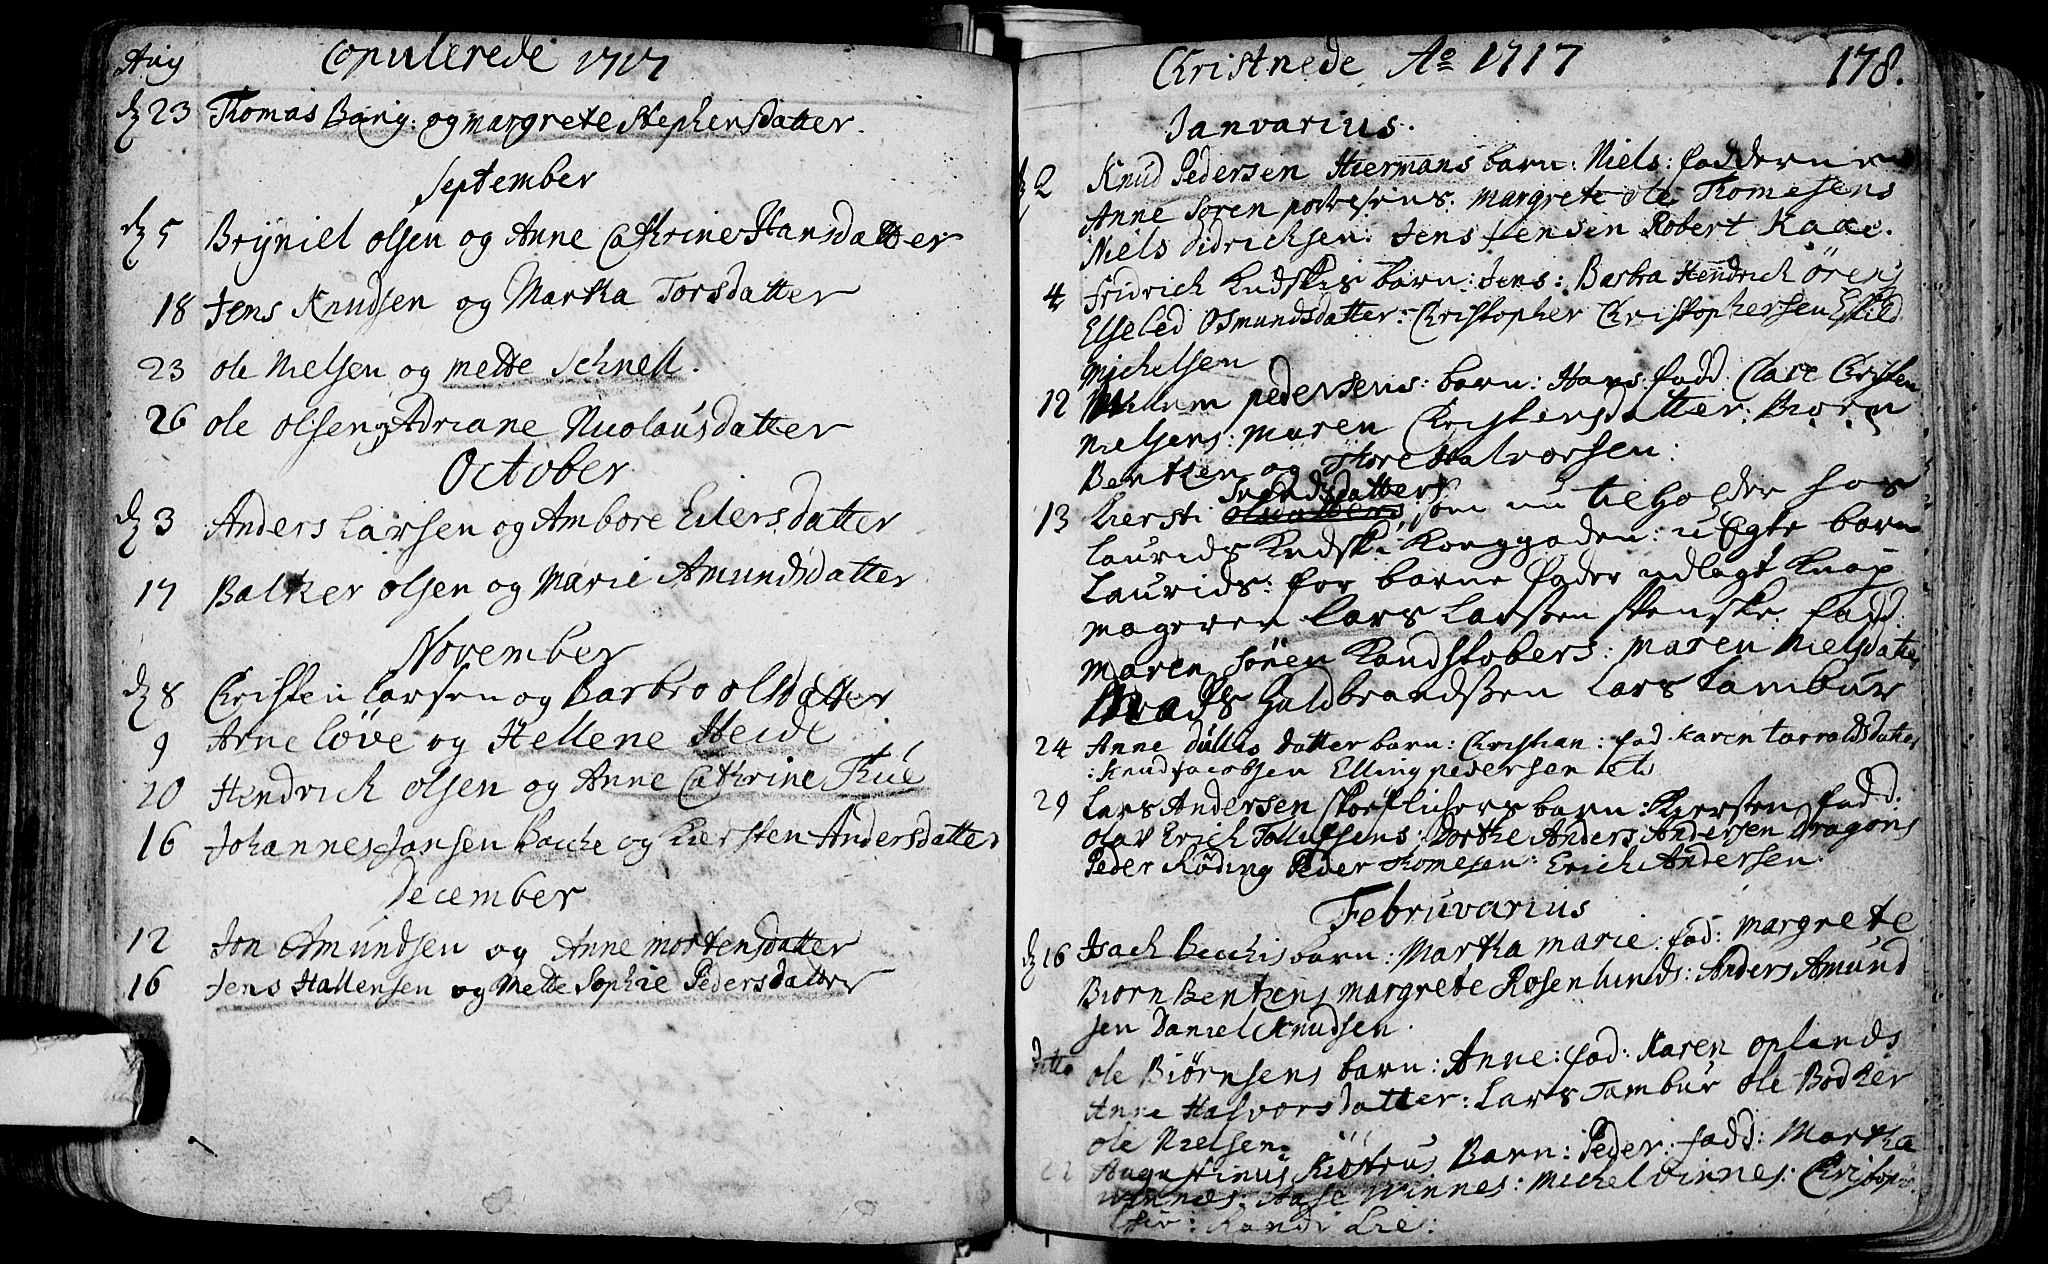 Aug Copulerede 1717
d 23 Thomas Bang: og margrete Stephensdatter.
September
d 5 Bryniel olsen og Anne Cathrine Hansdatter
18 Jens Knudsen og Martha Torsdatter
23 ole Nielsen og mette Schnell.
26 ole olsen og Adriane Nicolausdatter
October
d 3 Anders Larsen og Ambore Eilersdatter
17 Balzer olsen og Marie Amundsdatter
November
d 8 Christen Larsen og Barbro olsdatter
9 Arne Løve og Hellene Heide
20 Hendrich olsen og Anne Cathrine Thue
16 Johannes Jansen Bache og Kiersten Andersdatter
December
12 Jon Amundsen og Anne mortensdatter
16 Jens Hallensen og Mette Sophie Pedersdatter
Christnede Ao 1717 178.
Janvarius.
d 2 Knud Pedersen Hiermans barn: Niels: fadderne
Anne Søren margrete ole Thomesens
Niels didrichsen: Jens Jensen Robert Kaae.
4 Fridrich Kudskis barn: Jens: Barbra Hendrich
Elseled Osmundsdatter: Christopher Christophersen Eskild
Michelsen
12 Willum pedersens: barn: Hans: fadd: Clare Christen
Nielsens: maren Christensdatter: Biørn
Bentzen og Thore Halvorsen:
Svendsdatters
13 Kiersti olsdatters som nu tilholder hos
Laurids Kudsk i Konggaden: uEgte barn
Laurids: for barne fader udlagt Knap
mageren Lars Larssen Svenske. fadd:
maren Sören Kandstøbers: maren Nielsdatter
Mads Guldbrandssen Lars Tambur
24 Anne datter barn: Christian: fad Karen Torvaldsdatter
: Knud Jacobsen Elling pedersen etc
29 Lars Andersen barn: Kiersten fadd:
Olav Erich Tollefsens: Dorthe Anders Andersen Dragons
Peder Röding Peder Thomesen: Erich Andersen
Februvarius
d 16 Isach Becchis barn: Martha marie: fad: margrete
Biørn Bentzens margrete Rosenlunds: Anders Amund
sen Daniel Knudsen.
ditto ole Biørnsens barn: Anne: fad: Karen oplands
Anne Halvorsdatter: Lars Tambur ole Bødker
ole Nielsen.
22 Augustinus Barn: Peder: fadd: Martha
Winnes: Aase Winnes: Michel Vinnes:
: Randi Lie: